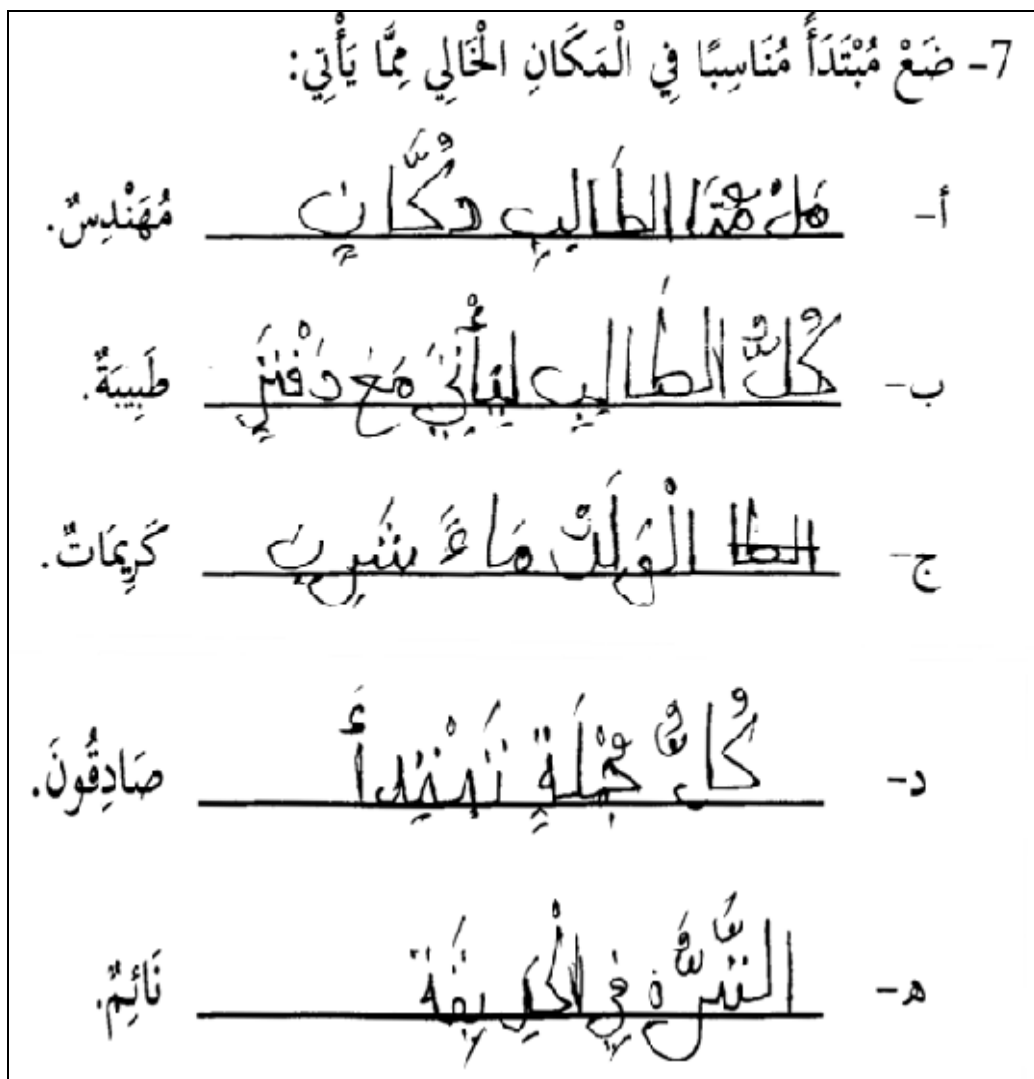 7- ضَعْ مُبْتَدَأً مُنَاسِبًا فِي الْمَكَانِ الْخَالِي مِمَّا يَأْتِي:
أ- هَلْ هَذَا الطَالِبِ دُكَّانٍ مُهَنْدِسٌ.
ب- كُلُّ الطَالِبِ مَعَ دَفْتَرٍ طَبِيبَةٌ.
ج- الْوَلَدُ مَاءً شَرِبَ كَرِيمَاتٌ.
د- كُلُّ جُمْلَةٍ صَادِقُونَ.
هـ- فِي الْحَدِيقَة نَائِمٌ.